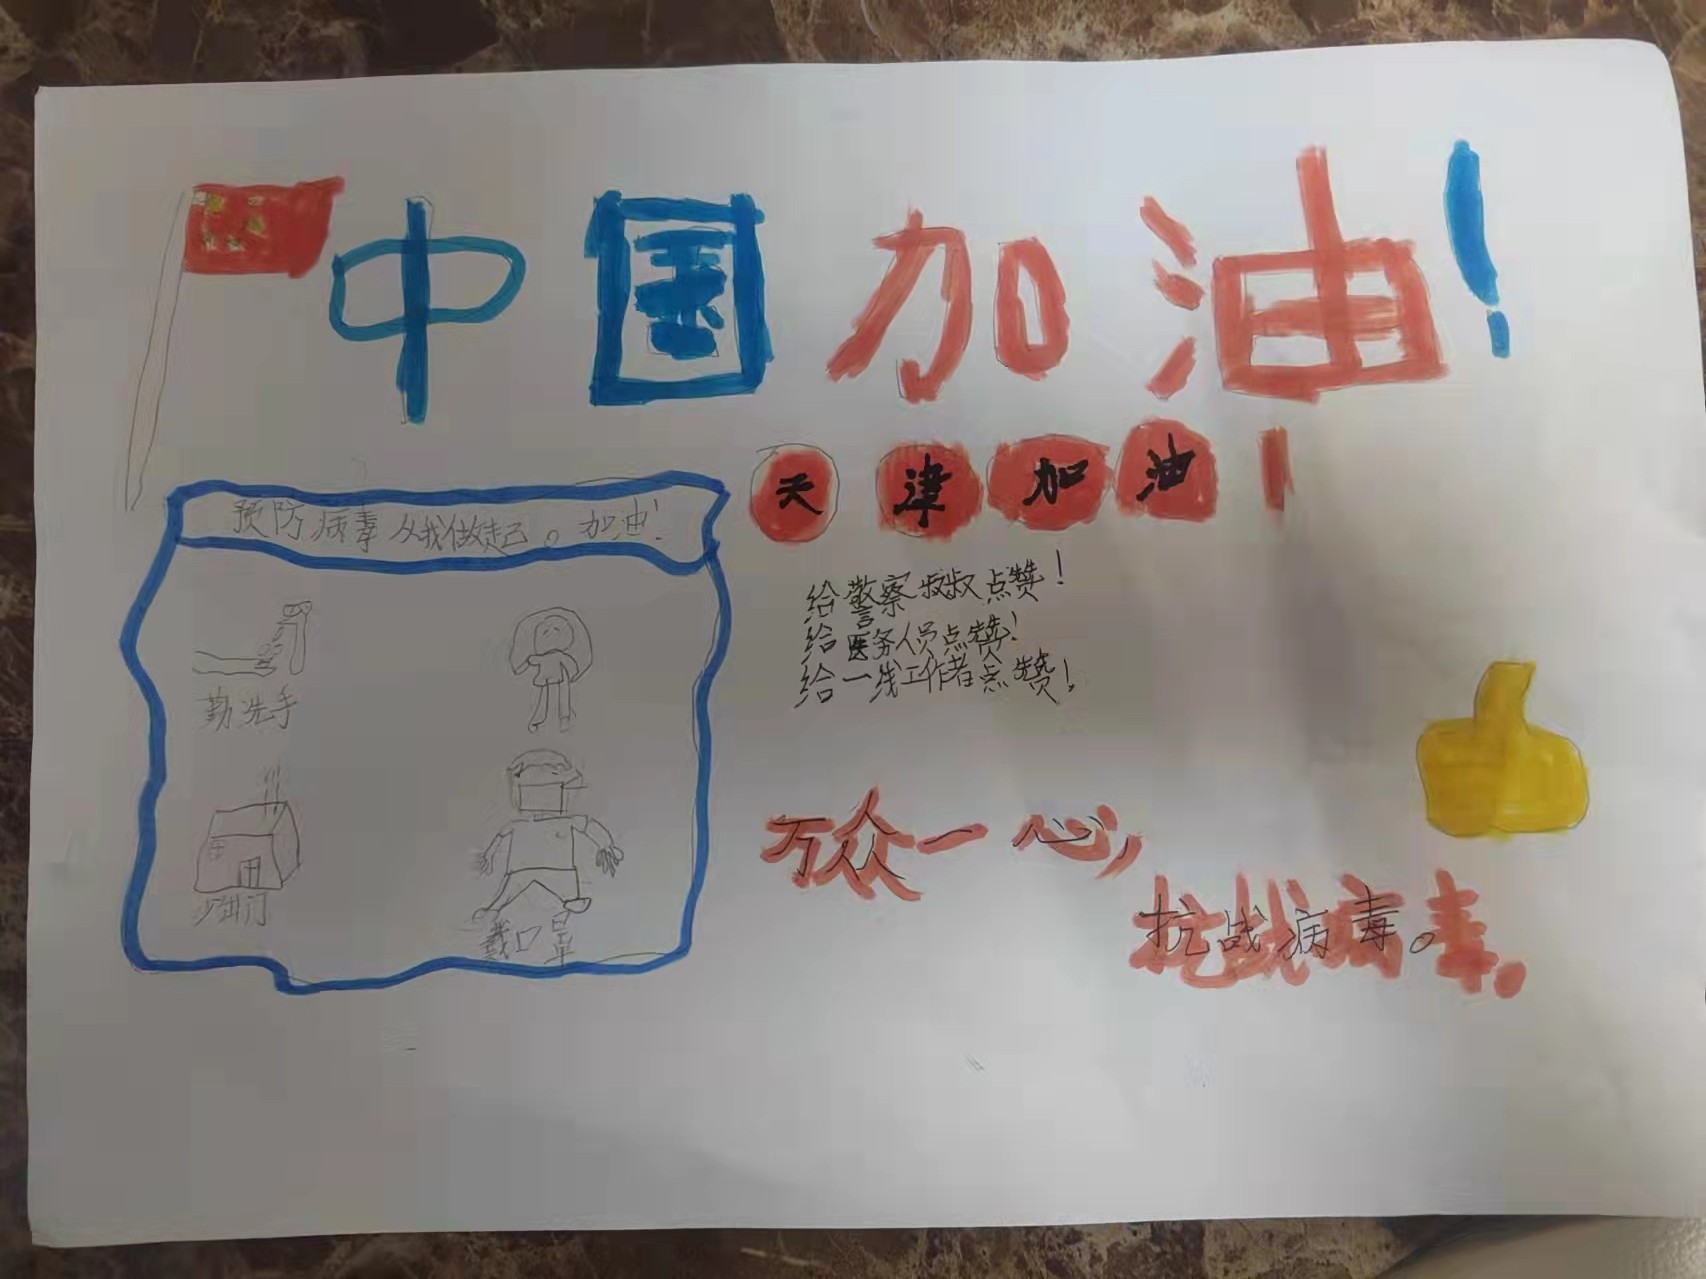 中国加油!
天津加油!
预防病毒从我做起。加油!
给警察叔叔点赞!
给医务人员点赞!
给一线工作者点赞!
勤洗手
少出门
戴口罩
万众一心,
抗战病毒。